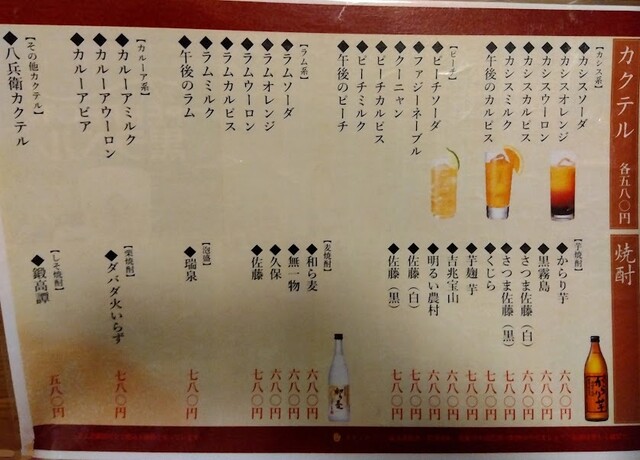 カクテル 各五八〇円
【カシス系】
◆カシスソーダ
◆カシスオレンジ
◆カシスウーロン
◆カシスカルピス
◆カシスミルク
◆午後のカルピス
【ピーチ】
◆ピーチソーダ
◆ファジーネーブル
◆クーニャン
◆ピーチカルピス
◆ピーチミルク
◆午後のピーチ
【ラム系】
◆ラムソーダ
◆ラムオレンジ
◆ラムウーロン
◆ラムカルピス
◆ラムミルク
◆午後のラム
【カルーア系】
◆カルーアミルク
◆カルーアウーロン
◆カルーアビア
【その他カクテル】
◆八兵衛カクテル
焼酎
【芋焼酎】
◆からり芋 六八〇円
◆黒霧島 六八〇円
◆さつま佐藤（白） 六八〇円
◆さつま佐藤（黒） 七八〇円
◆くじら 七八〇円
◆芋麹 芋 六八〇円
◆吉兆宝山 六八〇円
◆明るい農村 六八〇円
◆佐藤（白） 七八〇円
◆佐藤（黒） 七八〇円
【麦焼酎】
◆和ら麦 六八〇円
◆無一物 六八〇円
◆久保 六八〇円
◆佐藤 七八〇円
【泡盛】
◆瑞泉 七八〇円
【栗焼酎】
◆ダバダ火いらず 七八〇円
【しそ焼酎】
◆鍛高譚 五八〇円